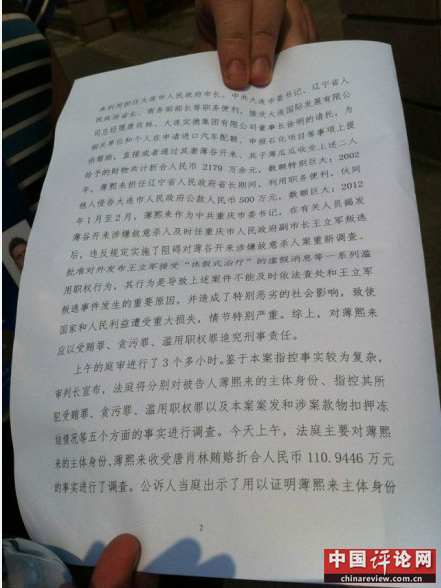 来利用担任大连市人民政府市长、中共大连市委书记、辽宁省人
民政府省长、商务部部长等职务便利，接受大连国际发展有限公
司总经理唐肖林、大连实德集团有限公司董事长徐明的请托，为
相关单位和个人在申请进口汽车配额、申报石化项目等事项上提
供帮助，直接或者通过其妻薄谷开来、其子薄瓜瓜收受上述二人
给予的财物共计折合人民币 2179 万余元，数额特别巨大；2002
年，薄熙来担任辽宁省人民政府省长期间，利用职务便利，伙同
他人侵吞大连市人民政府公款人民币 500 万元，数额巨大；2012
年 1 月至 2 月，薄熙来作为中共重庆市委书记，在有关人员揭发
薄谷开来涉嫌故意杀人及时任重庆市人民政府副市长王立军叛逃
后，违反规定实施了阻碍对薄谷开来涉嫌故意杀人案重新调查、
批准对外发布王立军接受“休假式治疗”的虚假消息等一系列滥
用职权行为，其行为是导致上述案件不能及时依法查处和王立军
叛逃事件发生的重要原因，并造成了特别恶劣的社会影响，致使
国家和人民利益遭受重大损失，情节特别严重。综上，对薄熙来
应以受贿罪、贪污罪、滥用职权罪追究刑事责任。
上午的庭审进行了 3 个多小时。鉴于本案指控事实较为复杂，
审判长宣布，法庭将分别对被告人薄熙来的主体身份、指控其所
犯受贿罪、贪污罪、滥用职权罪以及本案案发和涉案款物扣押冻
结情况等五个方面的事实进行调查。今天上午，法庭主要对薄熙
来的主体身份、薄熙来收受唐肖林贿赂折合人民币 110.9446 万元
的事实进行了调查。公诉人当庭出示了用以证明薄熙来主体身份
2
中国评论网
chinareview.com.cn